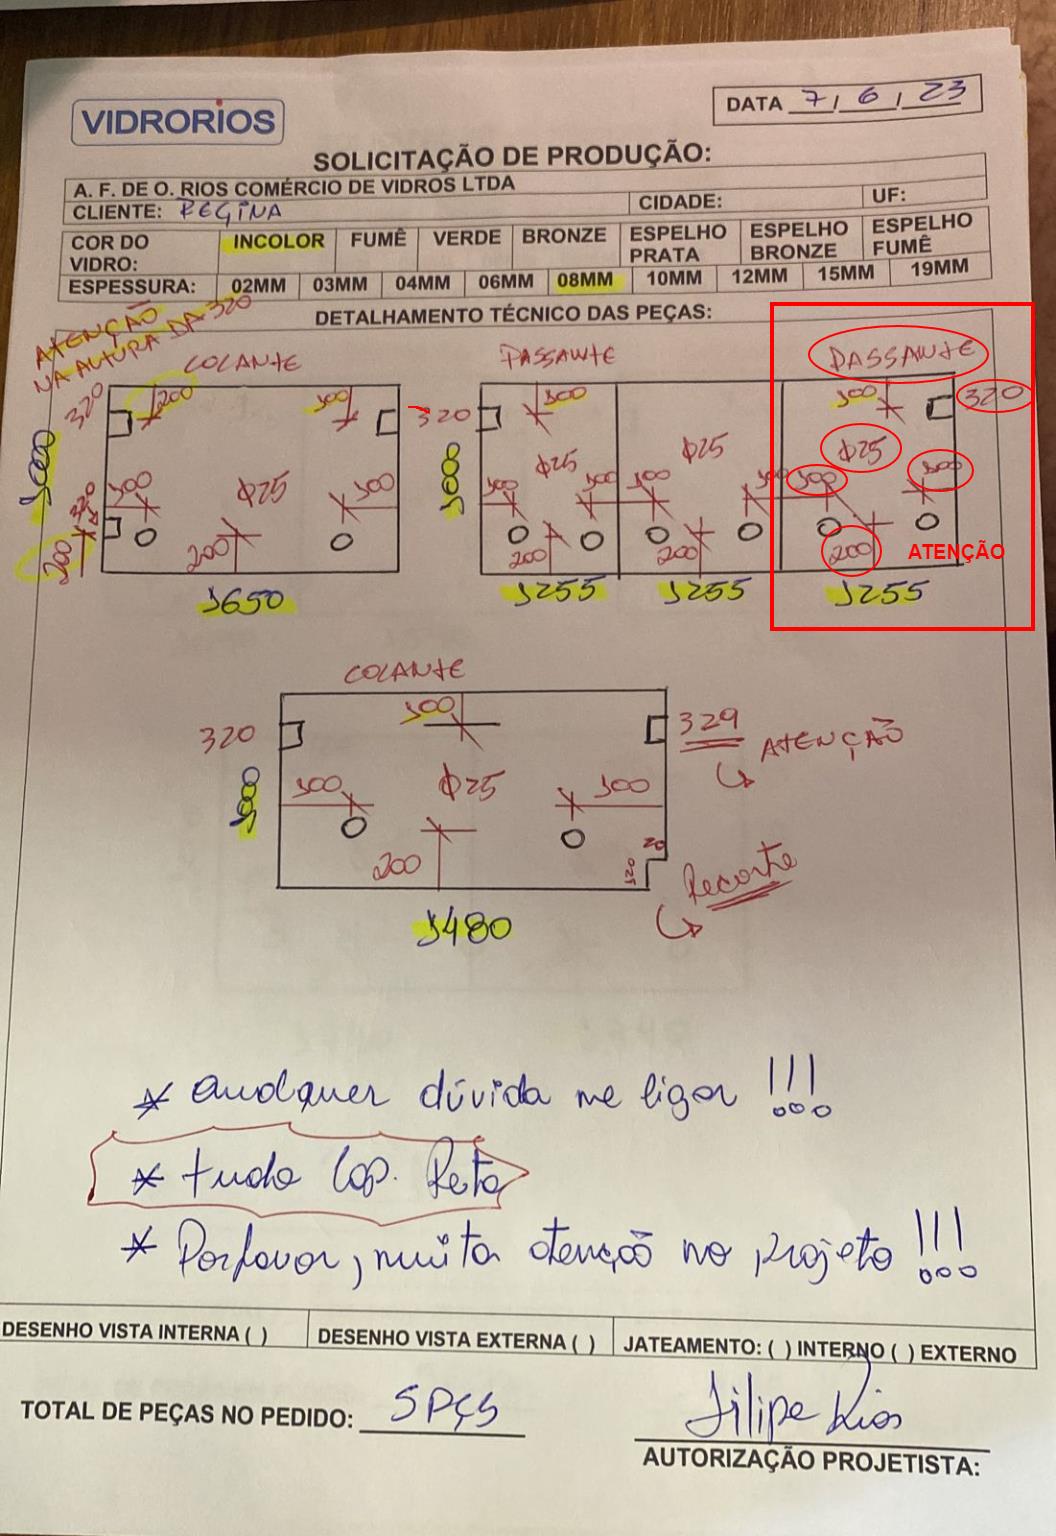 VIDRORIOS
DATA 7 / 6 / 23
SOLICITAÇÃO DE PRODUÇÃO:
A. F. DE O. RIOS COMÉRCIO DE VIDROS LTDA
CLIENTE: REGINA CIDADE: UF:
COR DO VIDRO: INCOLOR FUMÊ VERDE BRONZE ESPELHO PRATA ESPELHO BRONZE ESPELHO FUMÊ
ESPESSURA: 02MM 03MM 04MM 06MM 08MM 10MM 12MM 15MM 19MM
DETALHAMENTO TÉCNICO DAS PEÇAS:
ATENÇÃO
NA ALTURA DA 320
COLANTE
320 200 100
1000
100 ϕ25 100
320
200 200
1650
PASSANTE PASSANTE
320 100 100 320
1000 ϕ25 ϕ25 ϕ25
100 100 100 100 100 100
200 200 200 ATENÇÃO
1255 1255 1255
COLANTE
320 100 329 ATENÇÃO
1000 100 ϕ25 100
200 20 Recorte
1480
* Qualquer dúvida me ligar !!!
* tudo Lap. Reta
* Por favor, muita atenção no projeto !!!
DESENHO VISTA INTERNA ( ) DESENHO VISTA EXTERNA ( ) JATEAMENTO: ( ) INTERNO ( ) EXTERNO
TOTAL DE PEÇAS NO PEDIDO: 5 PÇS
Filipe Rios
AUTORIZAÇÃO PROJETISTA: